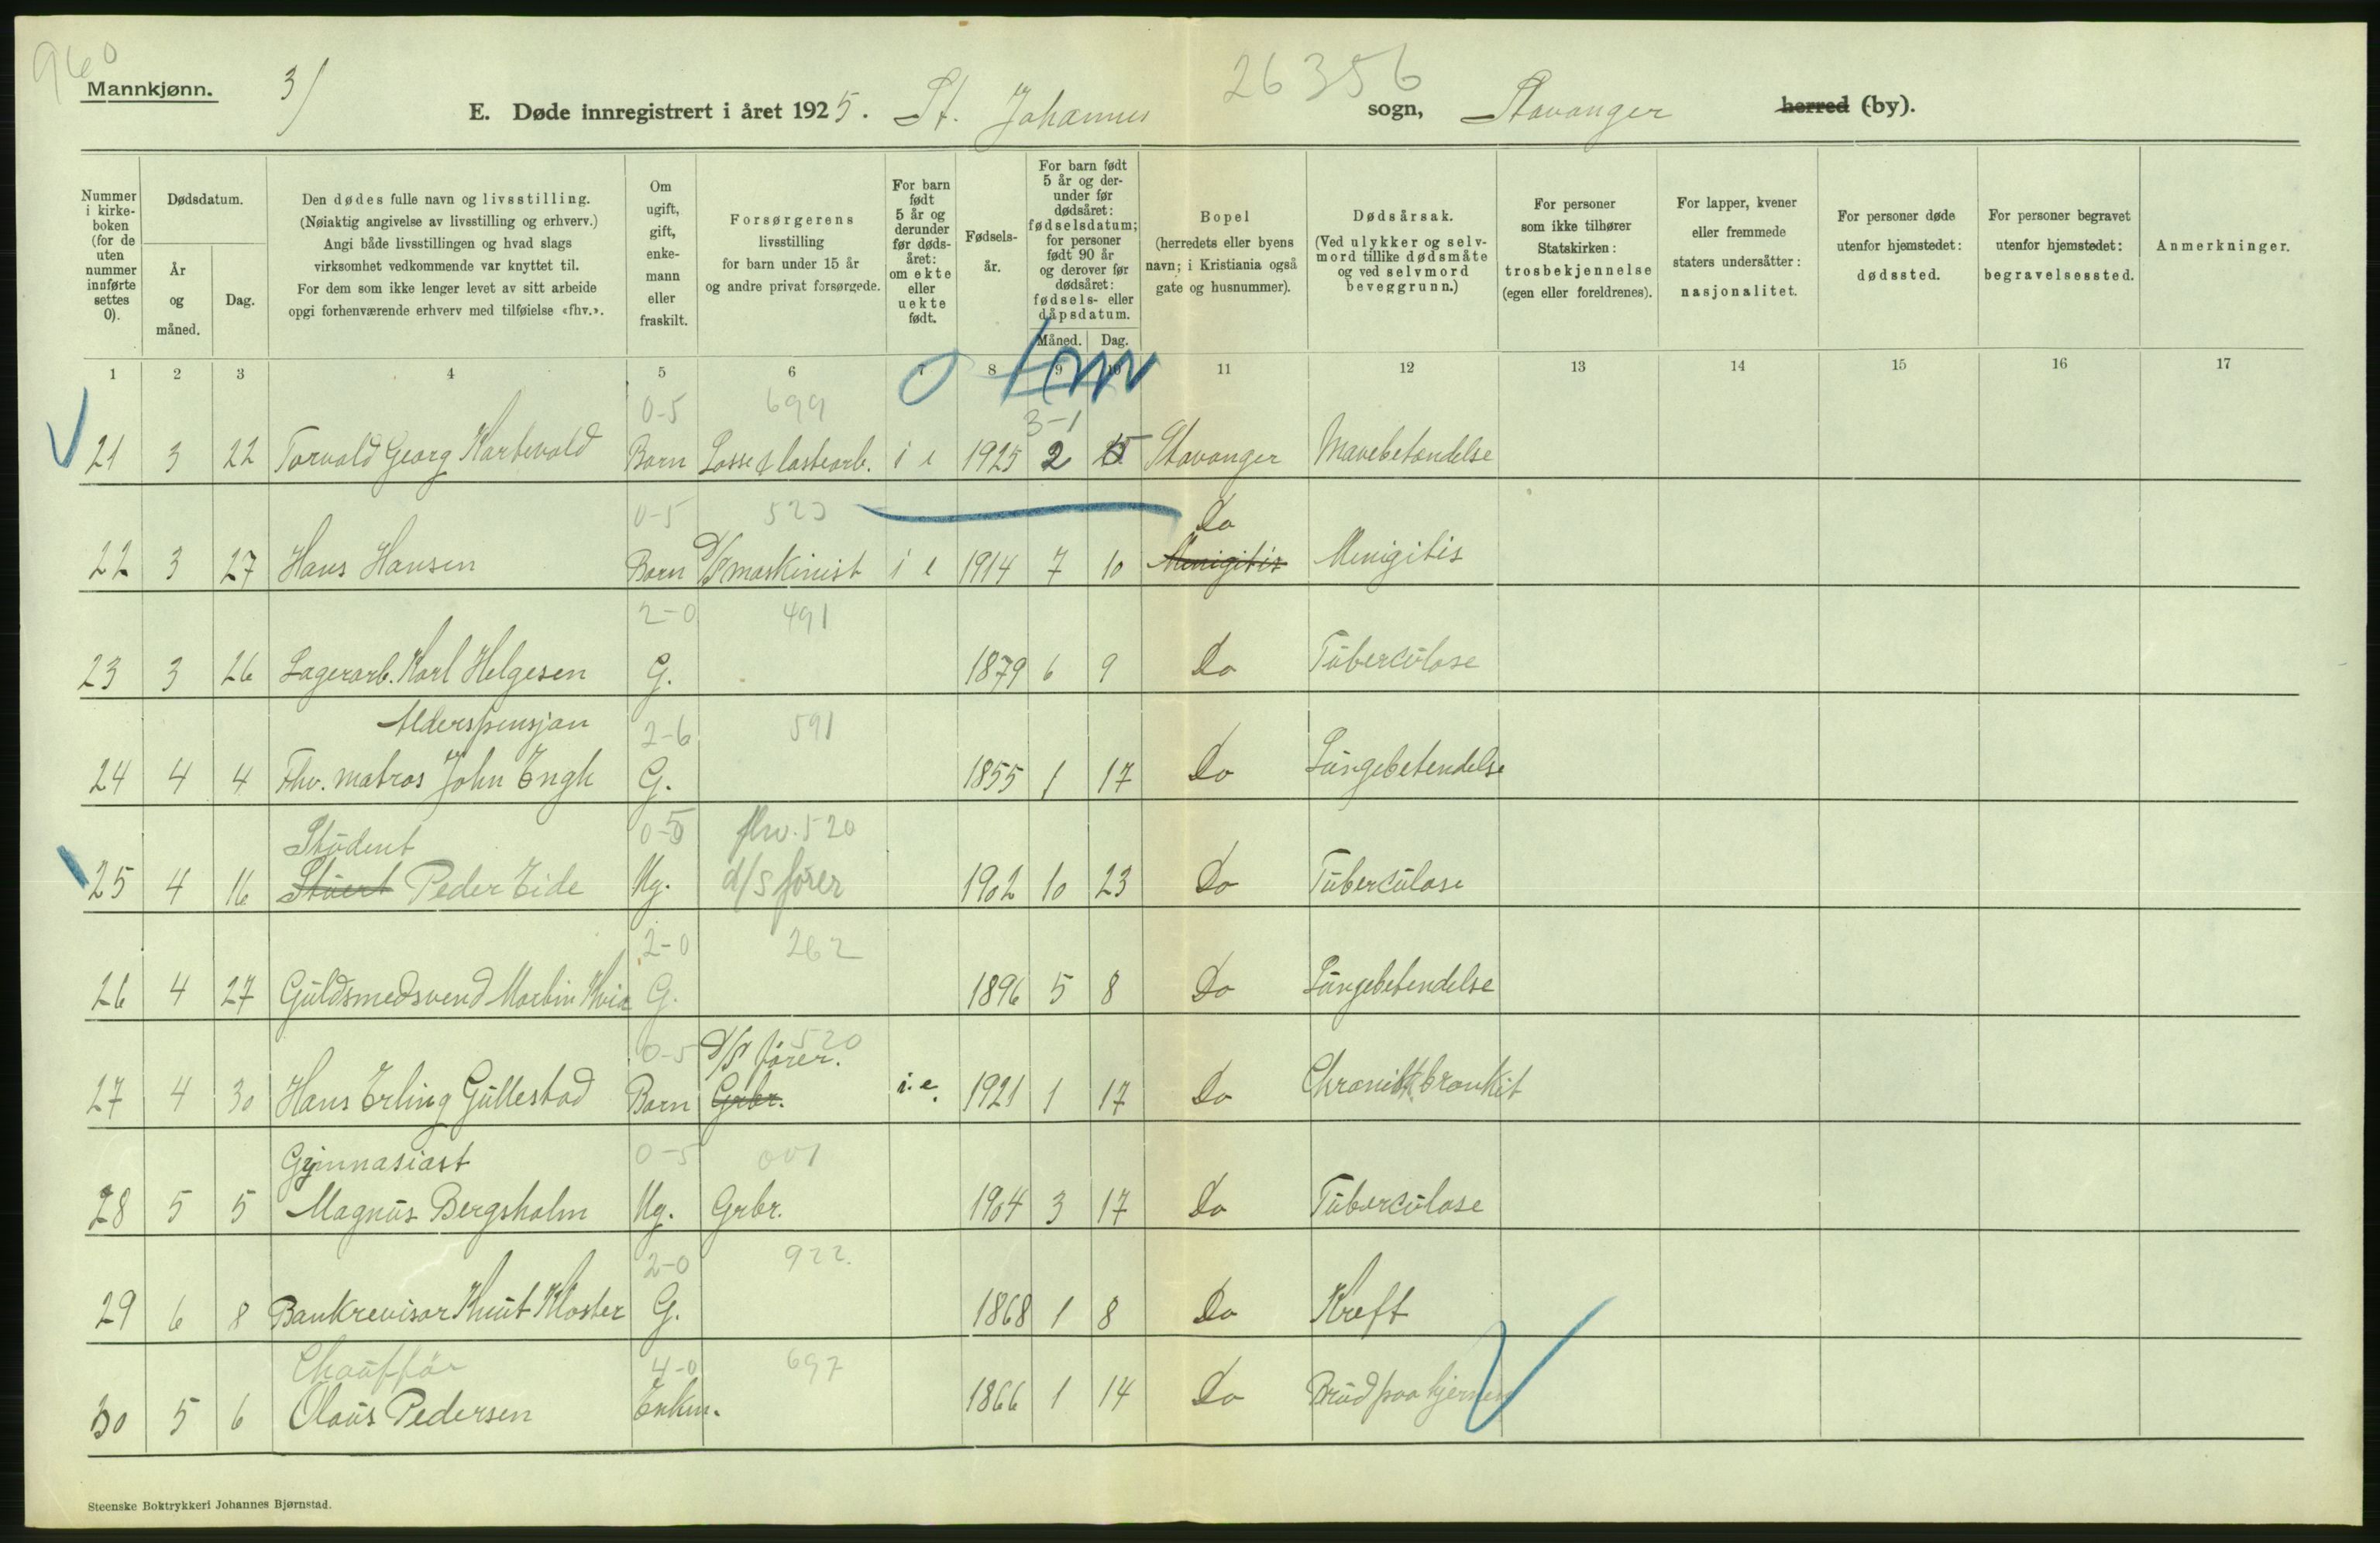 960
26356
Mannkjønn.
3/
E. Døde innregistrert i året 1925. St. Johannes sogn, Stavanger herred (by).
Nummer i kirke-boken (for de uten nummer innførte settes 0).
Dødsdatum.
År og måned.
Dag.
Den dødes fulle navn og livsstilling.
(Nøiaktig angivelse av livsstilling og erhverv.)
Angi både livsstillingen og hvad slags
virksomhet vedkommende var knyttet til.
For dem som ikke lenger levet av sitt arbeide
opgi forhenværende erhverv med tilføielse «fhv.».
Om ugift, gift, enke-mann eller fraskilt.
Forsørgerens
livsstilling
for barn under 15 år
og andre privat forsørgede.
For barn født 5 år og derunder før døds-året: om ekte eller uekte født.
Fødsels-år.
For barn født 5 år og der-under før dødsåret: fødselsdatum; for personer født 90 år og derover før dødsåret: fødsels- eller dåpsdatum.
Måned.
Dag.
Bopel
(herredets eller byens
navn; i Kristiania også
gate og husnummer).
Dødsårsak.
(Ved ulykker og selv-
mord tillike dødsmåte
og ved selvmord
beveggrunn.)
For personer
som ikke tilhører
Statskirken:
trosbekjennelse
(egen eller foreldrenes).
For lapper, kvener
eller fremmede
staters undersåtter:
nasjonalitet.
For personer døde
utenfor hjemstedet:
dødssted.
For personer begravet
utenfor hjemstedet:
begravelsessted.
Anmerkninger.
1 2 3 4 5 6 7 8 9 10 11 12 13 14 15 16 17
0-5 699 3-1
21 3 22 Torvald Georg Kartevold Barn Losse & lastearb. i e 1925 2 Stavanger Mavebetændelse
0-5 523 Do
22 3 27 Hans Hansen Barn D/S maskinist i e 1914 7 10 Menigitis Menigitis
2-0 491
23 3 26 Lagerarb. Karl Helgesen G. 1879 6 9 Do Tuberculose
Alderspensjon 2-6 591
24 4 4 Fhv. matros John Engh G. 1855 1 17 Do Lungebetendelse
Student 0-5 fhv. 520
25 4 16 Stuert Peder Eide Ug. d/s fører 1902 10 23 Do Tuberculose
2-0 262
26 4 27 Guldsmedsvend Martin Kvia G. 1896 5 8 Do Lungebetendelse
0-5 D/S fører. 520
27 4 30 Hans Erling Gullestad Barn Grbr. i.e. 1921 1 17 Do Chronisk bronkit
Gymnasiast 0-5 001
28 5 5 Magnus Bergsholm Ug. Grbr. 1904 3 17 Do Tuberculose
2-0 922.
29 6 8 Bankrevisor Knut Kloster G. 1868 1 8 Do Kreft
Chauffør 4-0 697
30 5 6 Olaus Pedersen Enkm. 1866 1 14 Do Brud paa hjernen
Steenske Boktrykkeri Johannes Bjørnstad.